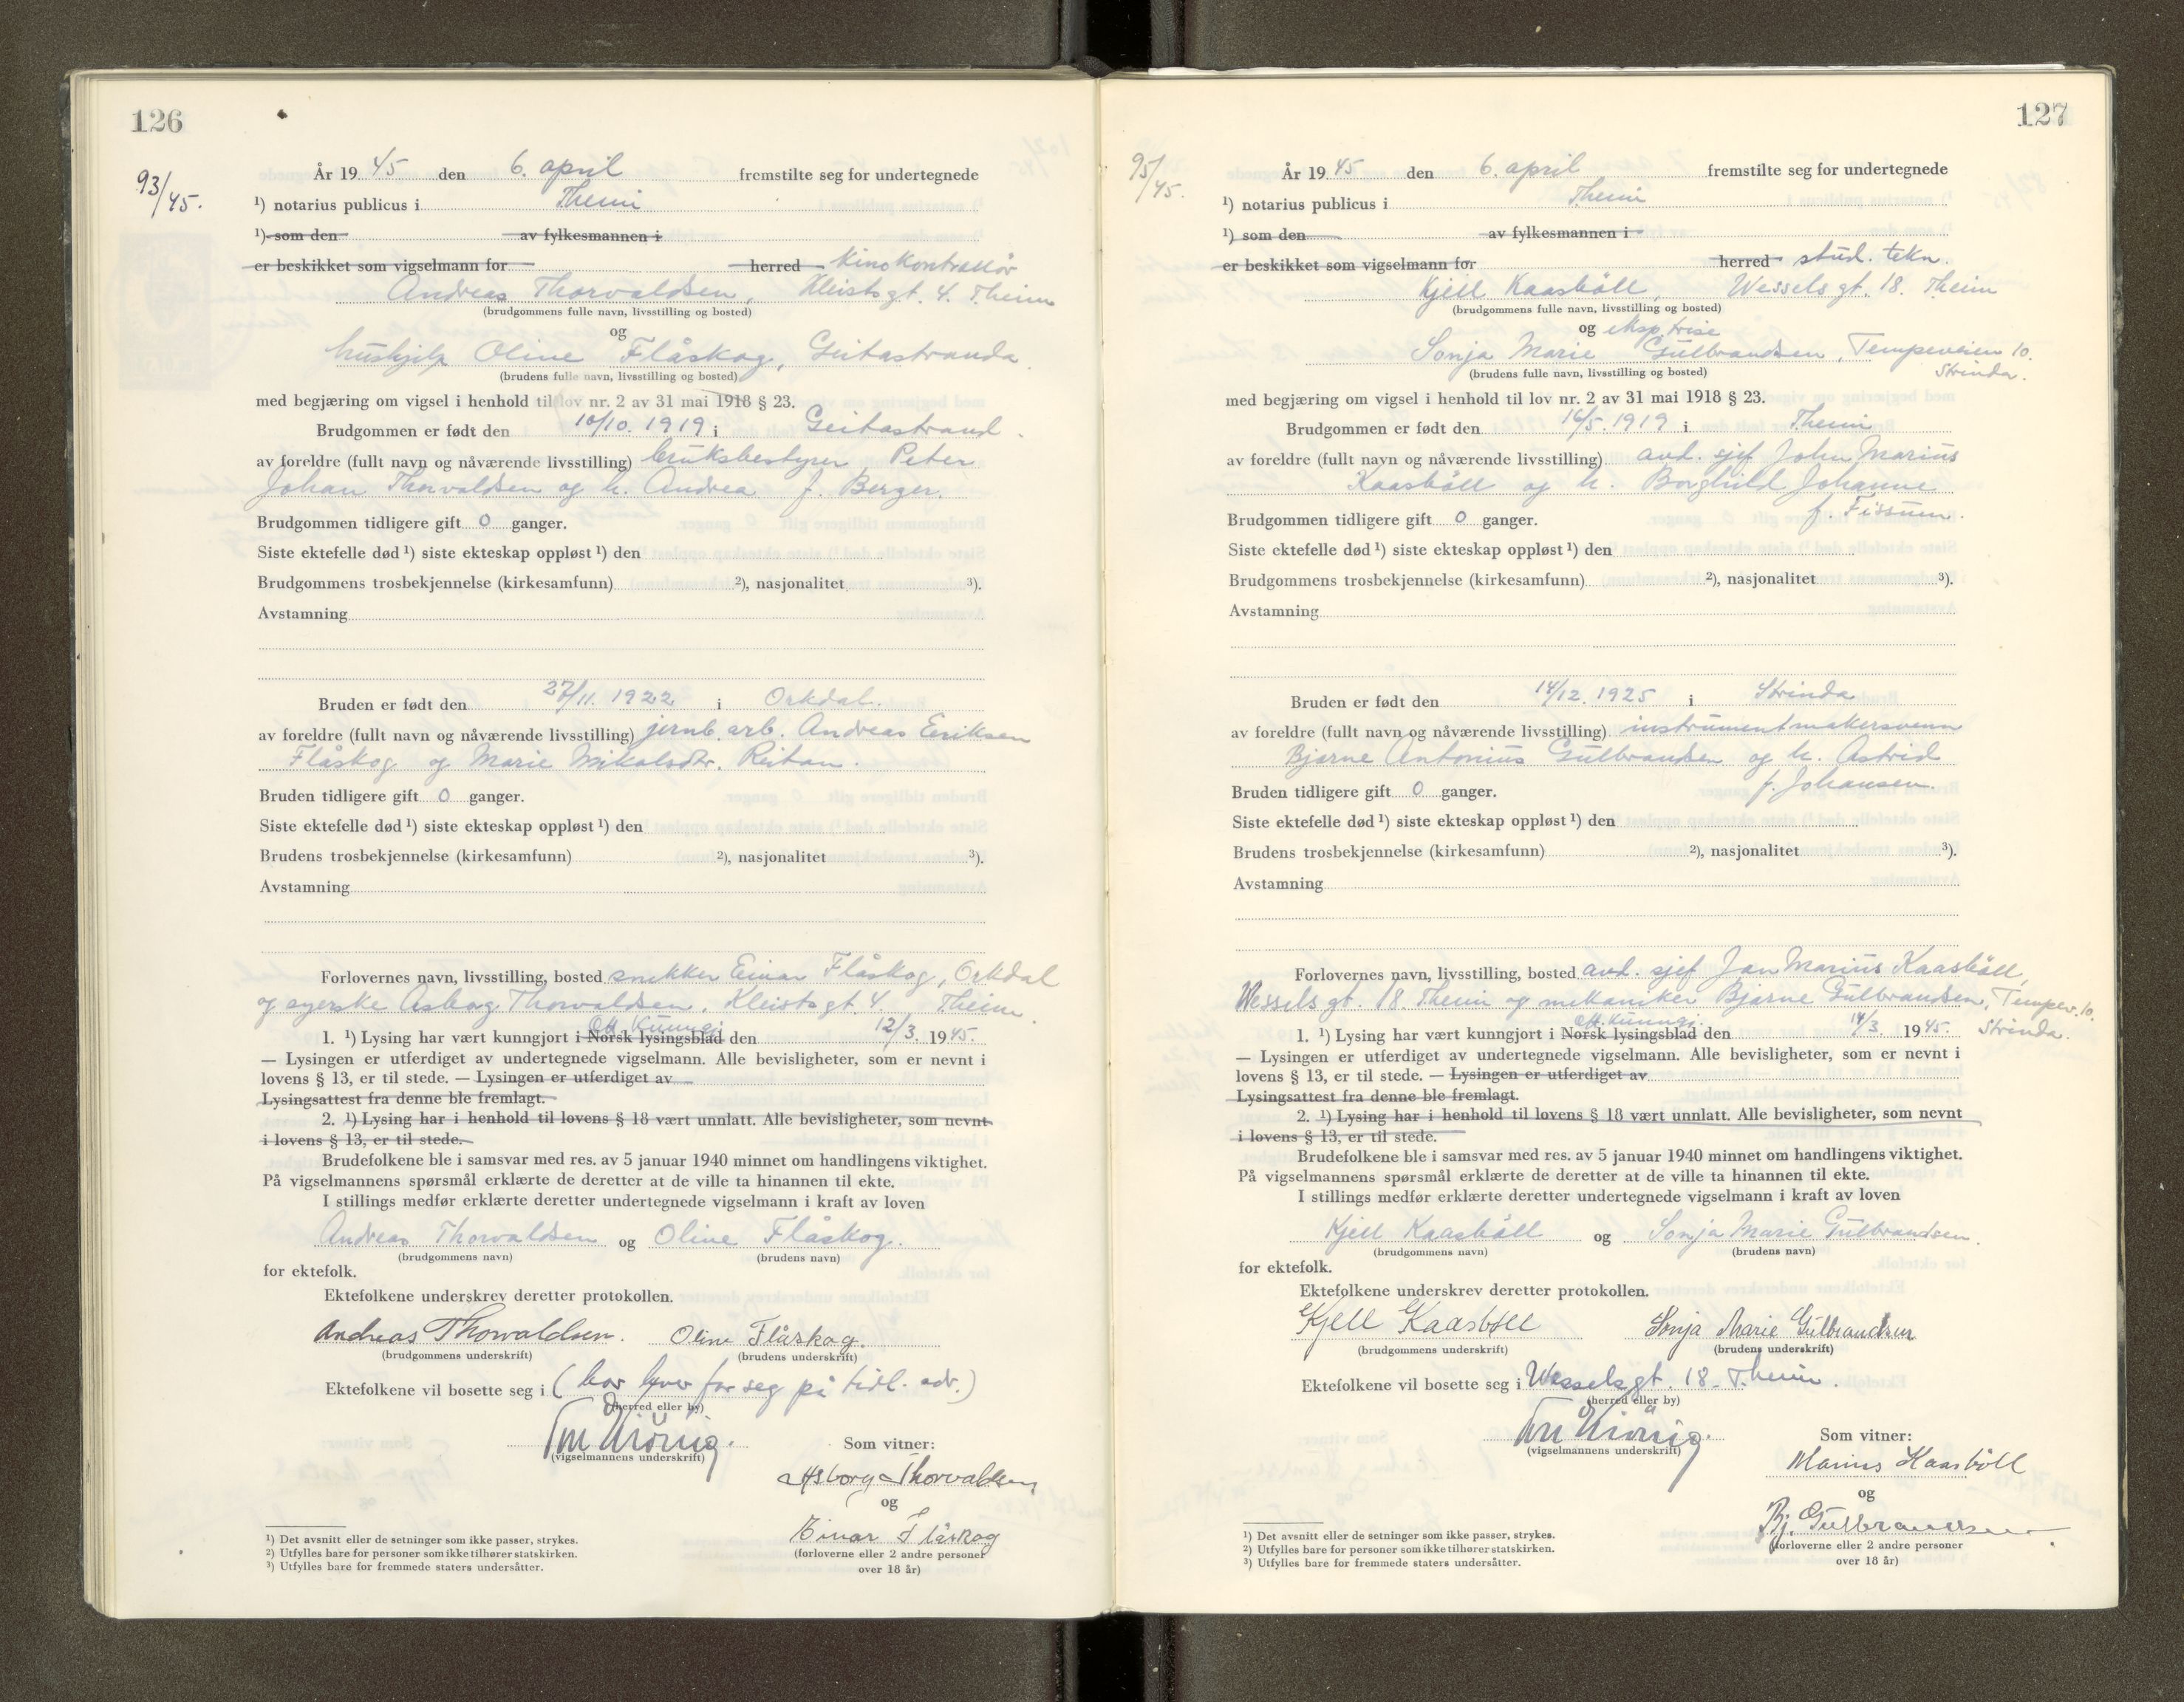 126
93/45.
År 19 45 den 6. april fremstilte seg for undertegnede
¹) notarius publicus i Theim
¹) som den av fylkesmannen i
er beskikket som vigselmann for herred kinokontrollør
Andreas Thorvaldsen, Kleistsgt. 4. Theim
(brudgommens fulle navn, livsstilling og bosted)
og
hushjelp Oline Flåskog, Geitastranda
(brudens fulle navn, livsstilling og bosted)
med begjæring om vigsel i henhold til lov nr. 2 av 31 mai 1918 § 23.
Brudgommen er født den 10/10. 1919 i Geitastrand.
av foreldre (fullt navn og nåværende livsstilling) bruksbestyrer Peter
Johan Thorvaldsen og h. Andrea f. Berger.
Brudgommen tidligere gift 0 ganger.
Siste ektefelle død ¹) siste ekteskap oppløst ¹) den
Brudgommens trosbekjennelse (kirkesamfunn) ²), nasjonalitet ³).
Avstamning
Bruden er født den 27/11. 1922 i Orkdal.
av foreldre (fullt navn og nåværende livsstilling) jernb. arb. Andreas Eriksen
Flåskog og Marie Mikalsdtr. Reitan.
Bruden tidligere gift 0 ganger.
Siste ektefelle død ¹) siste ekteskap oppløst ¹) den
Brudens trosbekjennelse (kirkesamfunn) ²), nasjonalitet ³).
Avstamning
Forlovernes navn, livsstilling, bosted snekker Einar Flåskog, Orkdal
og syerske Asborg Thorvaldsen, Kleistsgt. 4. Theim.
Off. Kunngj.
1. ¹) Lysing har vært kunngjort i Norsk lysingsblad den 12/3. 1945.
— Lysingen er utferdiget av undertegnede vigselmann. Alle bevisligheter, som er nevnt i
lovens § 13, er til stede. — Lysingen er utferdiget av
Lysingsattest fra denne ble fremlagt.
2. ¹) Lysing har i henhold til lovens § 18 vært unnlatt. Alle bevisligheter, som nevnt
i lovens § 13, er til stede.
Brudefolkene ble i samsvar med res. av 5 januar 1940 minnet om handlingens viktighet.
På vigselmannens spørsmål erklærte de deretter at de ville ta hinannen til ekte.
I stillings medfør erklærte deretter undertegnede vigselmann i kraft av loven
Andreas Thorvaldsen og Oline Flåskog.
(brudgommens navn) (brudens navn)
for ektefolk.
Ektefolkene underskrev deretter protokollen.
Andreas Thorvaldsen. Oline Flåskog.
(brudgommens underskrift) (brudens underskrift)
Ektefolkene vil bosette seg i (bor hver for seg på tidl. adr.)
(herred eller by)
(vigselmannens underskrift)
Som vitner:
Asborg Thorvaldsen
og
Einar Flåskog
(forloverne eller 2 andre personer
over 18 år)
¹) Det avsnitt eller de setninger som ikke passer, strykes.
²) Utfylles bare for personer som ikke tilhører statskirken.
³) Utfylles bare for fremmede staters undersåtter.
127
95/45.
År 19 45 den 6. april fremstilte seg for undertegnede
¹) notarius publicus i Theim
¹) som den av fylkesmannen i
er beskikket som vigselmann for herred stud. tekn.
Kjell Kaasböll, Wesselsgt. 18. Theim
(brudgommens fulle navn, livsstilling og bosted)
og eksp.trise
Sonja Marie Gulbrandsen, Tempeveien 10.
Strinda.
(brudens fulle navn, livsstilling og bosted)
med begjæring om vigsel i henhold til lov nr. 2 av 31 mai 1918 § 23.
Brudgommen er født den 16/5. 1919 i Theim
av foreldre (fullt navn og nåværende livsstilling) avd. sjef John Marius
Kaasböll og h. Borghild Johanne
f. Fissum.
Brudgommen tidligere gift 0 ganger.
Siste ektefelle død ¹) siste ekteskap oppløst ¹) den
Brudgommens trosbekjennelse (kirkesamfunn) ²), nasjonalitet ³).
Avstamning
Bruden er født den 14/12. 1925 i Strinda
av foreldre (fullt navn og nåværende livsstilling) instrumentmakersvenn
Bjarne Antonius Gulbrandsen og h. Astrid
f. Johansen.
Bruden tidligere gift 0 ganger.
Siste ektefelle død ¹) siste ekteskap oppløst ¹) den
Brudens trosbekjennelse (kirkesamfunn) ²), nasjonalitet ³).
Avstamning
Forlovernes navn, livsstilling, bosted avd. sjef Jan Marius Kaasböll,
Wessels gt. 18. Theim og mekaniker Bjarne Gulbrandsen, Tempev. 10.
Strinda.
Off. Kunngj.
1. ¹) Lysing har vært kunngjort i Norsk lysingsblad den 14/3. 1945.
— Lysingen er utferdiget av undertegnede vigselmann. Alle bevisligheter, som er nevnt i
lovens § 13, er til stede. — Lysingen er utferdiget av
Lysingsattest fra denne ble fremlagt.
2. ¹) Lysing har i henhold til lovens § 18 vært unnlatt. Alle bevisligheter, som nevnt
i lovens § 13, er til stede.
Brudefolkene ble i samsvar med res. av 5 januar 1940 minnet om handlingens viktighet.
På vigselmannens spørsmål erklærte de deretter at de ville ta hinannen til ekte.
I stillings medfør erklærte deretter undertegnede vigselmann i kraft av loven
Kjell Kaasböll og Sonja Marie Gulbrandsen.
(brudgommens navn) (brudens navn)
for ektefolk.
Ektefolkene underskrev deretter protokollen.
Kjell Kaasböll Sonja Marie Gulbrandsen
(brudgommens underskrift) (brudens underskrift)
Ektefolkene vil bosette seg i Wesselsgt. 18. Theim.
(herred eller by)
(vigselmannens underskrift)
Som vitner:
Marius Kaasböll
og
Bj. Gulbrandsen
(forloverne eller 2 andre personer
over 18 år)
¹) Det avsnitt eller de setninger som ikke passer, strykes.
²) Utfylles bare for personer som ikke tilhører statskirken.
³) Utfylles bare for fremmede staters undersåtter.